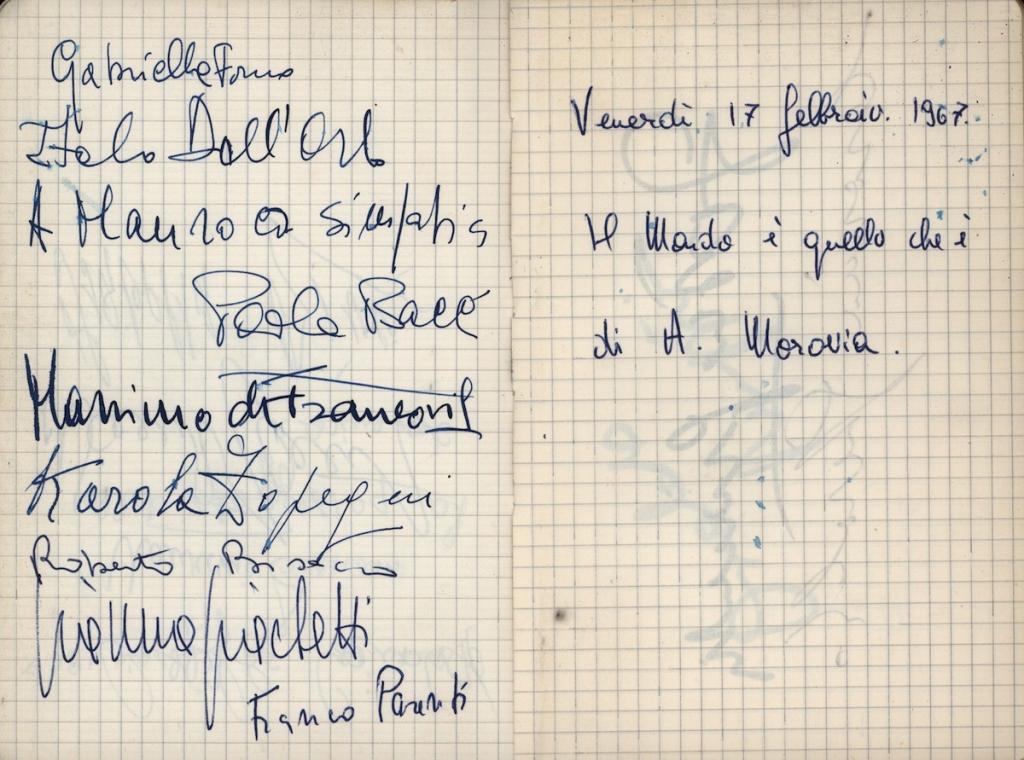 Gabriella
Italo Dall'Orto
A Mauro con simpatia
Paola Bacci
Massimo de Francovich
Karola Zopegni
Roberto Bisacco
Gianna Giachetti
Franco Parenti
Venerdì 17 febbraio. 1967.
Il Mondo è quello che è
di A. Moravia.